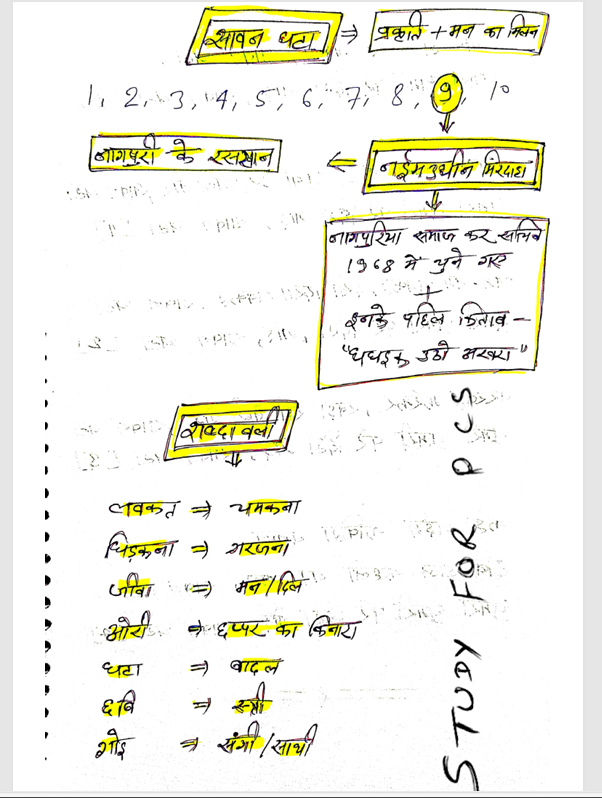 सावन घटा ⇒ प्रकृति + मन का मिलन
1, 2, 3, 4, 5, 6, 7, 8, 9, 10
नागपुरी के रसखान ⇐ नईमउद्दीन मिरदाहा
नागपुरिया समाज कर सचिव
1968 में चुने गए
+
इनके पहिल किताब -
"धधइक उठो मखरा"
शब्दावली
लवकत ⇒ चमकना
घिड़कना ⇒ गरजना
जीवा ⇒ मन/दिल
ओरी ⇒ छप्पर का किनारा
घटा ⇒ बादल
छवि ⇒ स्त्री
गोइ ⇒ संगी/साथी
STUDY FOR PCS